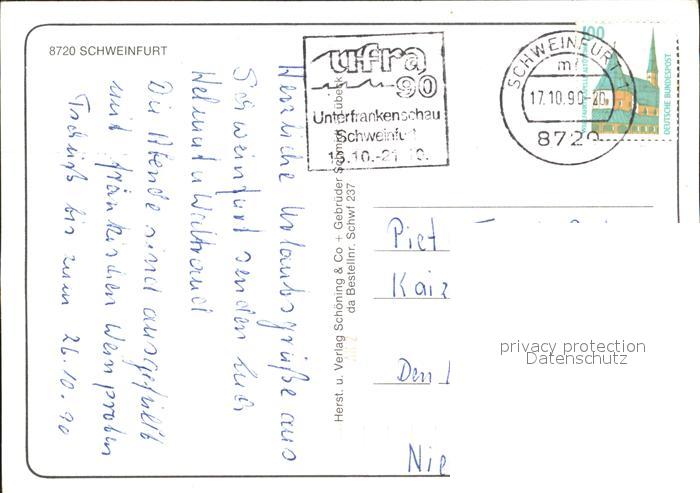 8720 SCHWEINFURT
Herzliche Urlaubsgrüße aus
Schweinfurt senden Euch
Helmut u Waltraud
Die Abende sind ausgefüllt
mit fränkischen Weinproben
Tschüß bis zum 26.10.90
Herst. u. Verlag Schöning & Co + Gebrüder Schmidt, Lübeck
da Bestellnr. Schwf 237
ufra
90
Unterfrankenschau
Schweinfurt
13.10.-21.10.
SCHWEINFURT 1
mf
17.10.90-20
8720
100
DEUTSCHE BUNDESPOST
Piet
Kaiz
Den
Nie
privacy protection
Datenschutz